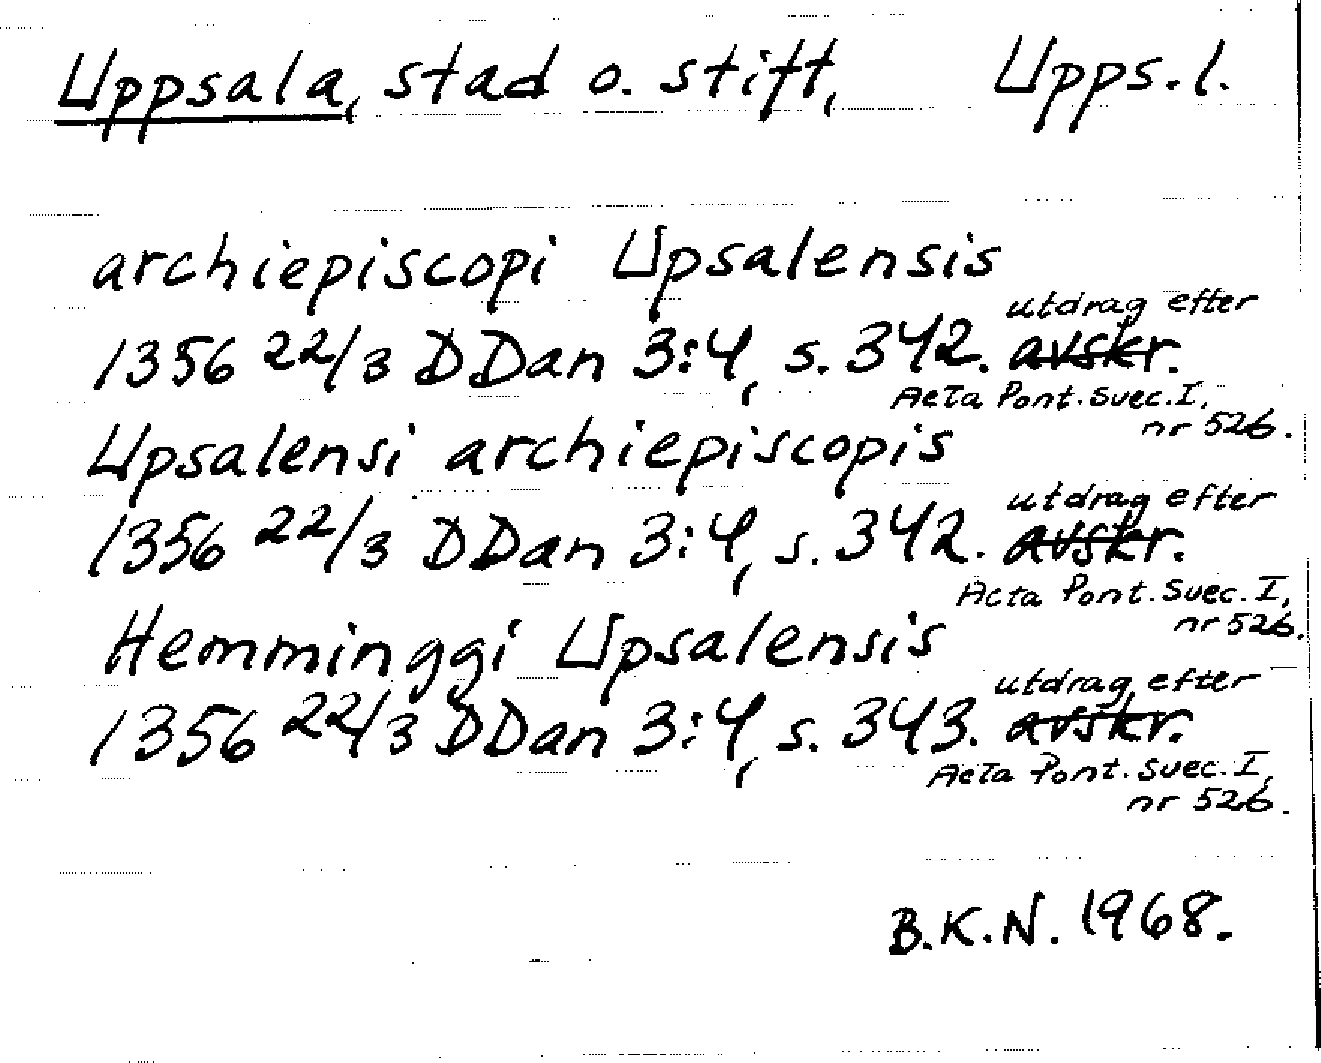 Uppsala, stad o. stift, Upps.l.
archiepiscopi Upsalensis
utdrag efter
1356 22/3 DDan 3:4, s. 342. avskr.
Acta Pont. Suec. I,
nr 526.
Upsalensi archiepiscopis
utdrag efter
1356 22/3 DDan 3:4, s. 342. avskr.
Acta Pont. Suec. I,
nr 526.
Hemminggi Upsalensis
utdrag efter
1356 22/3 DDan 3:4, s. 343. avskr.
Acta Pont. Suec. I,
nr 526.
B.K.N. 1968.